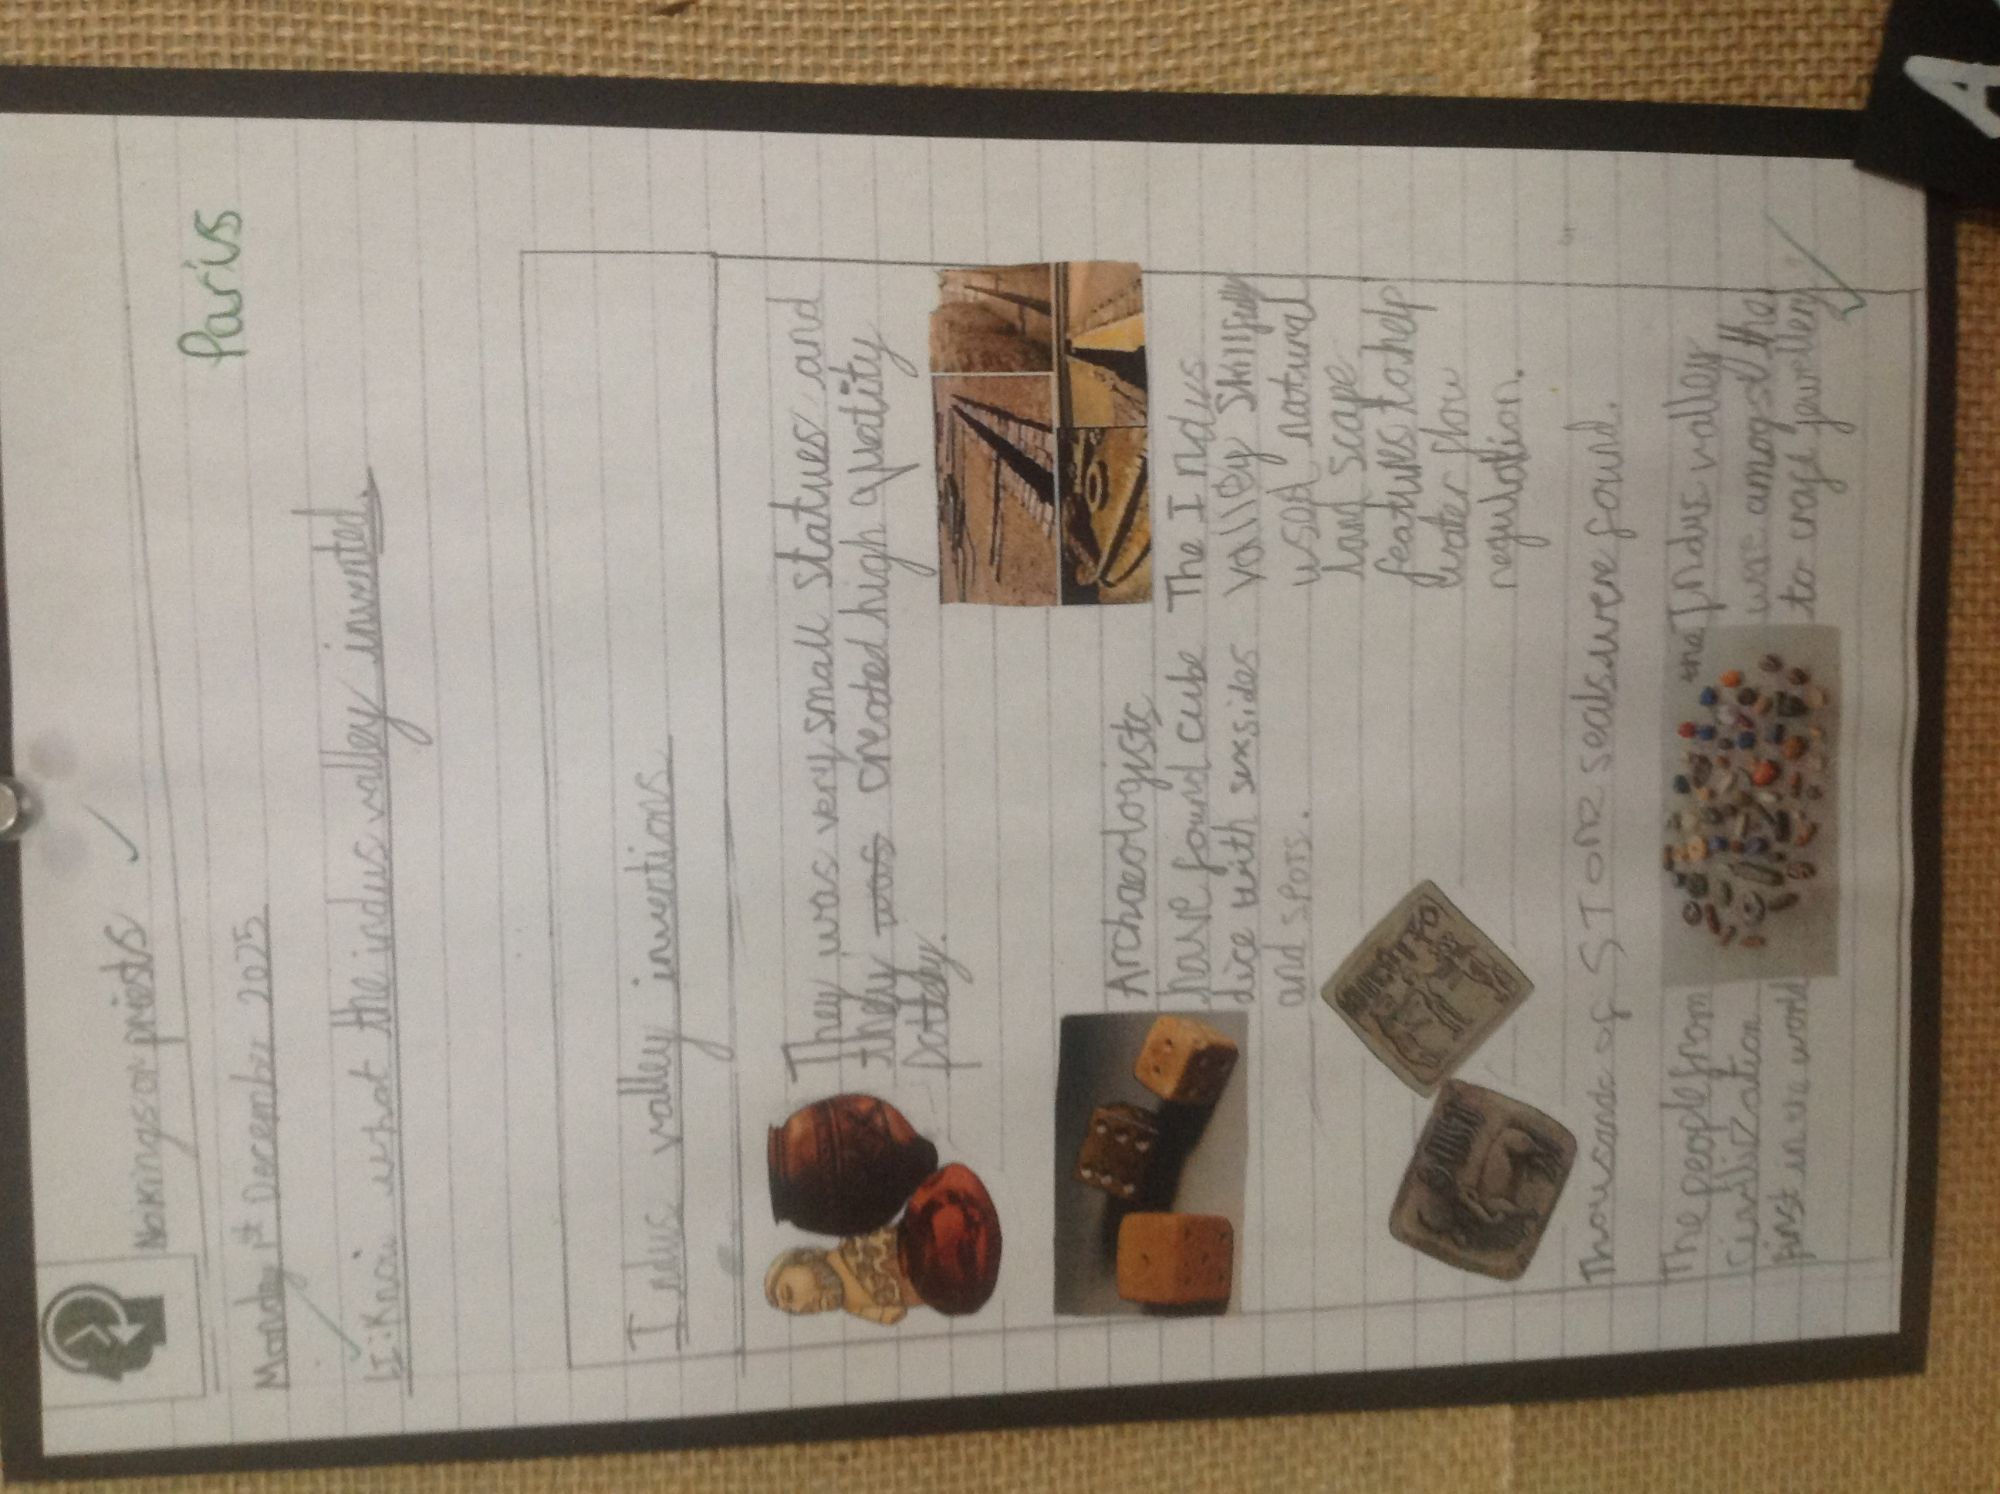 No kings or priests
Parius
Monday 1st December 2025
LI: Know what the indus valley invented.
Indus valley invertions
They was very small statues and
they was created high quatity
pottey.
Archaeologists
have found cube
dice with sex sides
and spots.
The Indus
valley skillfully
used natural
land scape
features to help
water flow
regulation.
Thousands of STone seals were found.
The people from the Indus vally
civiliZation were amogst the
first in the world to craft jewellery.
A